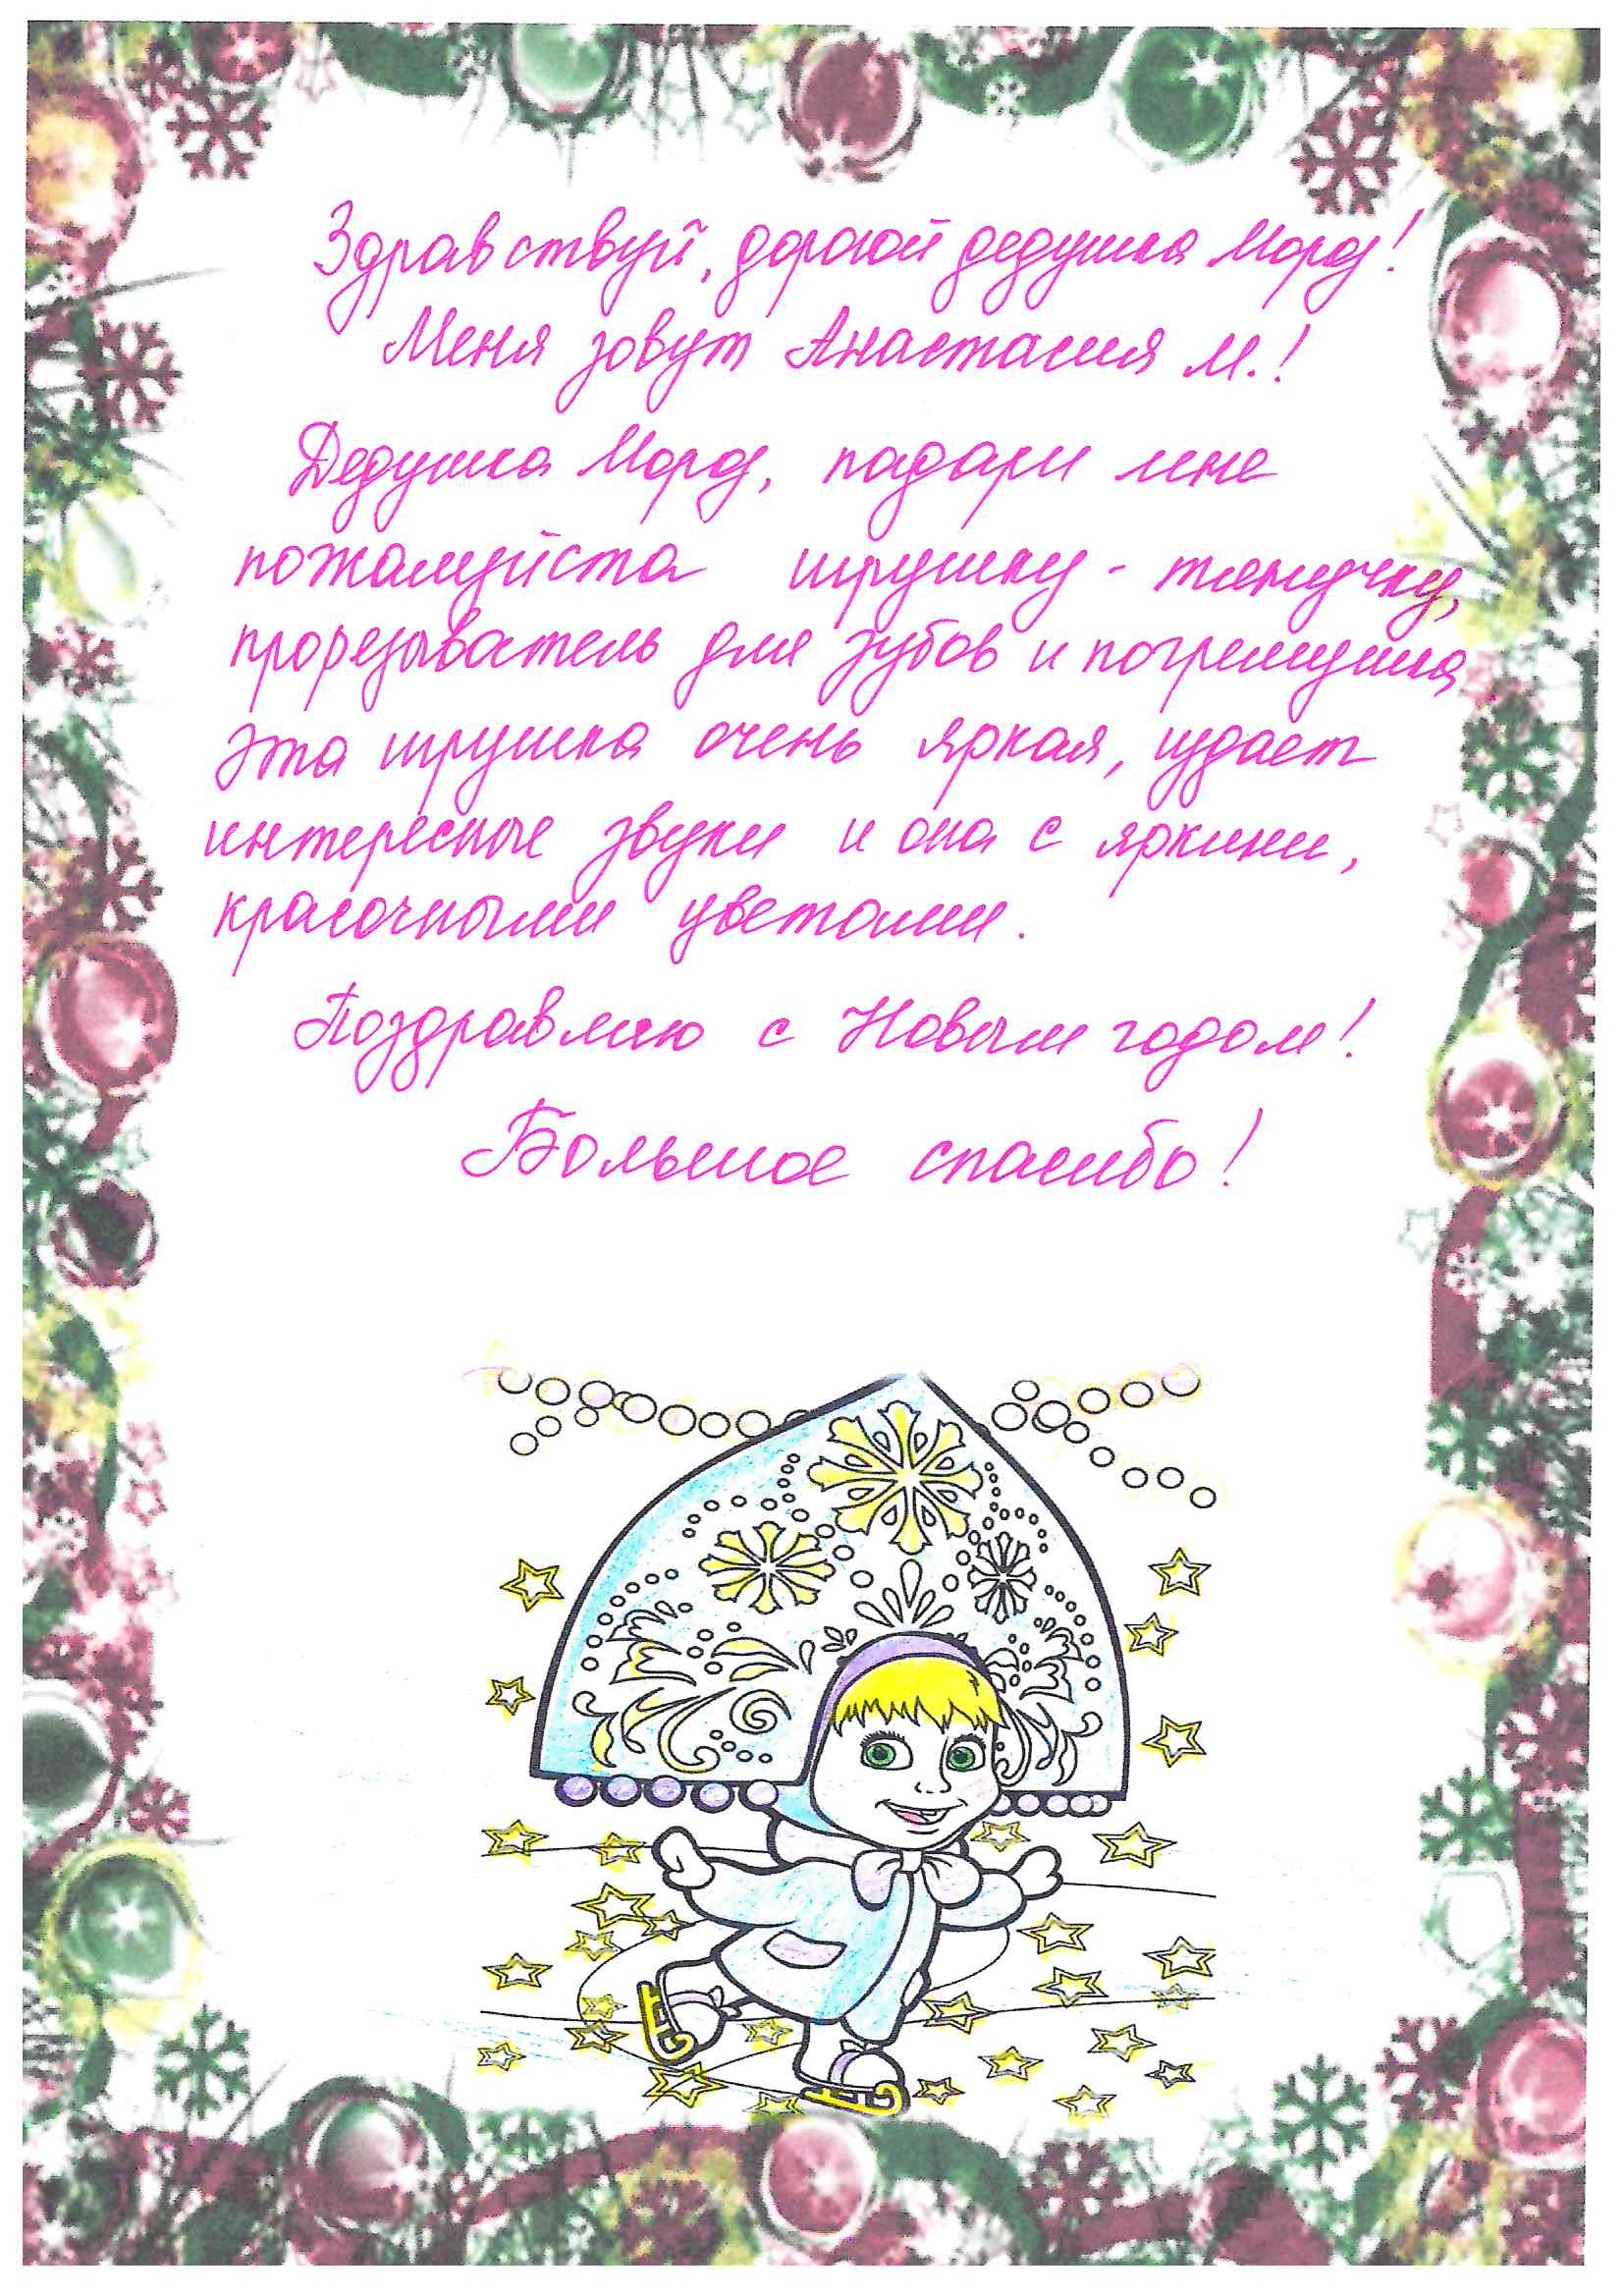 Здравствуй, дорогой дедушка Мороз!
Меня зовут Анастасия М.!
Дедушка Мороз, падари мне
пожалуйста игрушку - тянучку,
прорезыватель для зубов и погремушка
эта игрушка очень яркая, издает
интересные звуки и она с яркими,
красочными цветами.
Поздравляю с Новым годом!
Большое спасибо!